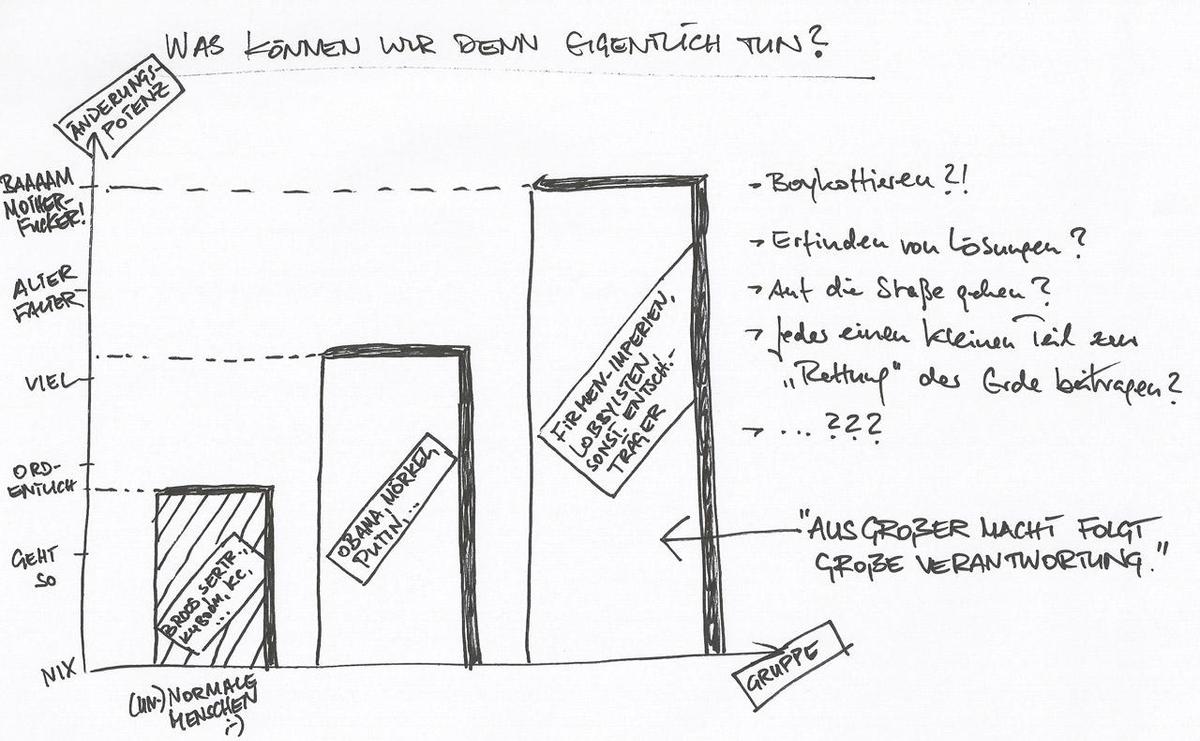 WAS KÖNNEN WIR DENN EIGENTLICH TUN?
ÄNDERUNGS-
POTENZ
BAAAAM
MOTHER-
FUCKER!
ALTER
FALTER
VIEL
ORD-
ENTLICH
GEHT
SO
NIX
BROOS SERTR.,
KUBOOM, KC,
...
(UN-)NORMALE
MENSCHEN
;-)
OBAMA, MÖRKEL,
PUTIN, ...
FIRMEN-IMPERIEN,
LOBBYISTEN
SONST. ENTSCH.-
TRÄGER
GRUPPE
→ Boykottieren?!
→ Erfinden von Lösungen?
→ Auf die Straße gehen?
→ Jedes einen kleinen Teil zur
„Rettung" der Erde beitragen?
→ ... ???
"AUS GROßER MACHT FOLGT
GROßE VERANTWORTUNG."